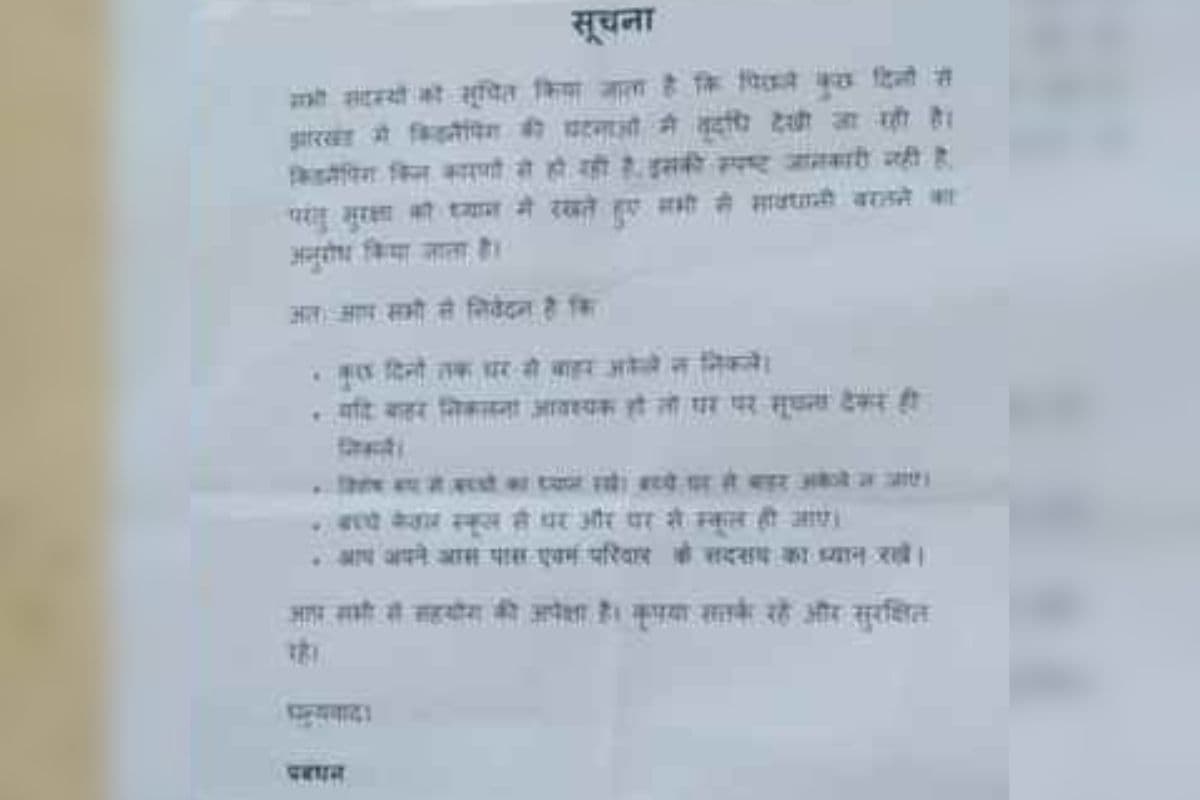 सूचना
सभी सदस्यों को सूचित किया जाता है कि पिछले कुछ दिनों से
झारखंड में किडनैपिंग की घटनाओं में वृद्धि देखी जा रही है।
किडनैपिंग किन कारणों से हो रही है, इसकी स्पष्ट जानकारी नहीं है,
परंतु सुरक्षा को ध्यान में रखते हुए सभी से सावधानी बरतने का
अनुरोध किया जाता है।
अतः आप सभी से निवेदन है कि
• कुछ दिनों तक घर से बाहर अकेले न निकलें।
• यदि बाहर निकलना आवश्यक हो तो घर पर सूचना देकर ही
निकलें।
• विशेष रूप से बच्चों का ध्यान रखें। बच्चे घर से बाहर अकेले न जाएं।
• बच्चे केवल स्कूल से घर और घर से स्कूल ही जाएं।
• आप अपने आस पास एवम परिवार के सदसय का ध्यान रखें।
आप सभी से सहयोग की अपेक्षा है। कृपया सतर्क रहें और सुरक्षित
रहें।
धन्यवाद।
प्रबंधन